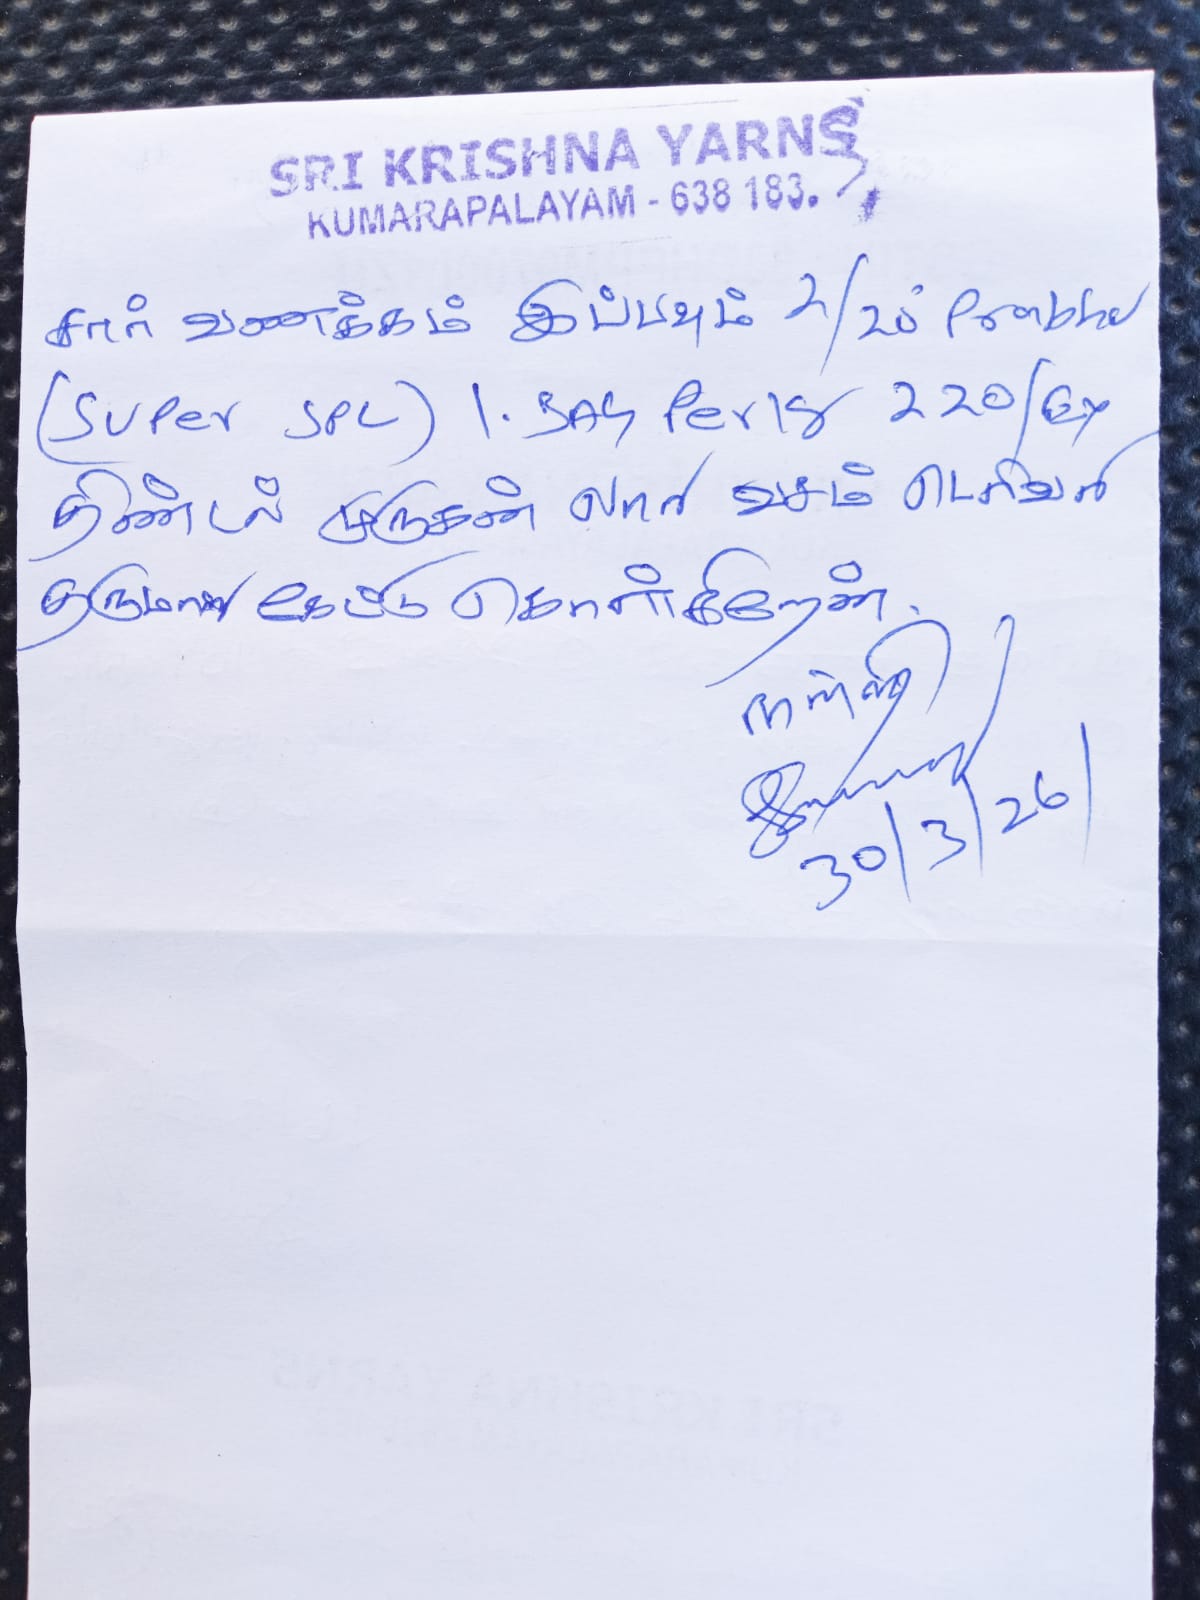 SRI KRISHNA YARNS
KUMARAPALAYAM - 638 183.
சார் வணக்கம் இப்பவும் 2/20 Prabhu
(Super SPL) 1. BAG Per kg 220/Ex
திண்டல் முருகன் லாரி வசம் டெலிவரி
தருமாறு கேட்டு கொள்கிறேன்.
நன்றி
30/3/26